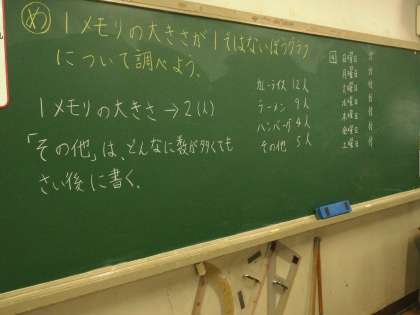 め 1メモリの大きさが1ではないぼうグラフ
について調べよう。
1メモリの大きさ→2(人)
「その他」は、どんなに数が多くても
さい後に書く。
カレーライス 12人
ラーメン 9人
ハンバーグ 4人
その他 5人
日曜日
月曜日
火曜日
水曜日
木曜日
金曜日
土曜日